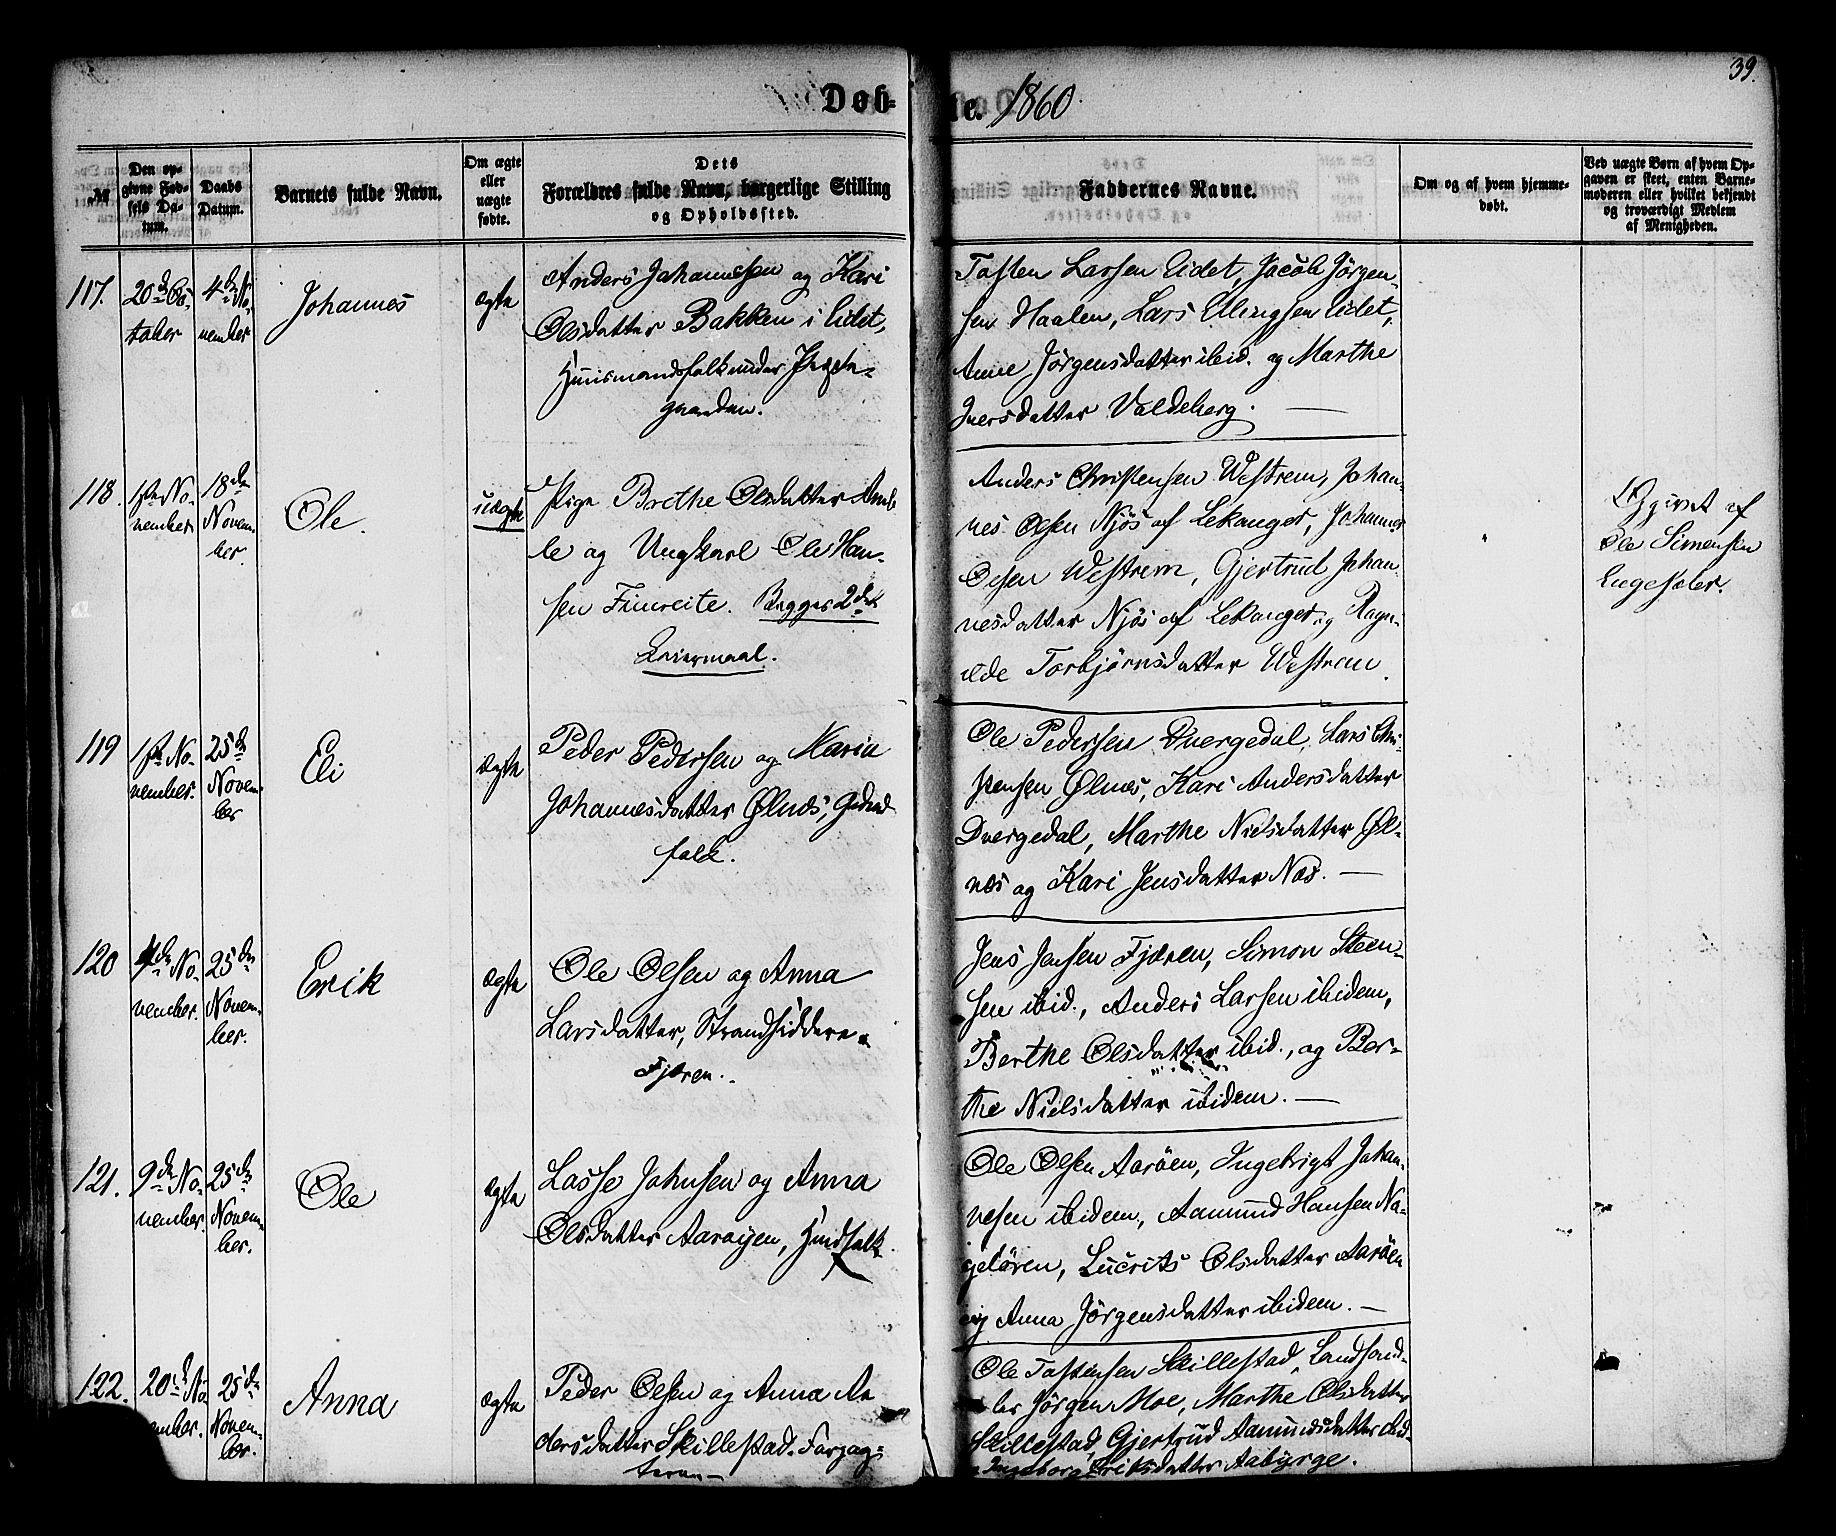 39.
Døb- te. 1860
№
Den opgivne Fødsels Datum.
Daabs Datum.
Barnets fulde Navn.
Om ægte eller uægte fødte.
Dets Forældres fulde Navn, borgerlige Stilling og Opholdssted.
Faddernes Navne.
Om og af hvem hjemmedøbt.
Ved uægte Børn af hvem Opgaven er skeet, enten Barnemoderen eller hvilket bekjendt og troværdigt Medlem af Menigheden.
117. 20de Oc-
tober
4de No-
vember
Johannes
ægte
Anders Johannessen og Kari
Olsdatter Bakken i Eidet,
Huusmandsfolk under Præste-
gaarden.
Tosten Larsen Eidet, Jacob Jörgen-
sen Haalen, Lars Ellingsen Eidet,
Anne Jörgensdatter ibid. og Marthe
Iversdatter Valdeberg. —
118. 1ste No-
vember
18de
Novem-
ber.
Ole.
uægte
Pige Brethe Olsdatter Amb
le og Ungkarl Ole Han-
sen Fimreite. Begges 2det
Leiermaal.
Anders Christensen Westrem, Johan-
nes Olsen Njös af Lekanger, Johannes
Olsen Westrem, Gjertrud Johan-
nesdatter Njös af Lekanger og Ragn-
ilde Torbjörnsdatter Westrem.
Opgivet af
Ole Simensen
119 1ste No-
vember.
25de
Novem-
ber
Eli
ægte
Peder Pedersen og Maria
Johannesdatter Ølnæs, Gaard
folk.
Ole Pedersen Dvergedal, Lars Chri-
stensen Ølnæs, Kari Andersdatter
Dvergedal, Marthe Nielsdatter Øl-
næs og Kari Jensdatter Næs. —
120 4de No-
vember.
25de
Novem-
ber.
Erik
ægte
Ole Olsen og Anna
Larsdatter, Strandsiddere
Fjæren.
Jens Jensen Fjæren, Simon Steen-
sen ibid., Anders Larsen ibidem,
Berthe Olsdatter ibid., og Ber-
the Nielsdatter ibidem. —
121. 9de No-
vember.
25de
Novem-
ber.
Ole
ægte
Lasse Johnsen og Anna
Olsdatter Aaröyen, Huusfolk.
Ole Olsen Aaröen, Ingebrigt Johan-
nesen ibidem, Aamund Hansen Na-
gelören, Lucrits Olsdatter Aaröen
og Anna Jörgensdatter ibidem. —
122. 20de No-
vember.
25de
Novem-
ber.
Anna
ægte
Peder Olsen og Anna An
dersdatter Skillestad.
Ole Tostensen Skillestad, Landhand-
ler Jörgen Moe, Marthe Olsdatter
Skillestad, Gjertrud Aamundsdatter ibid.
Ingeborg Eriksdatter Aabyrge.